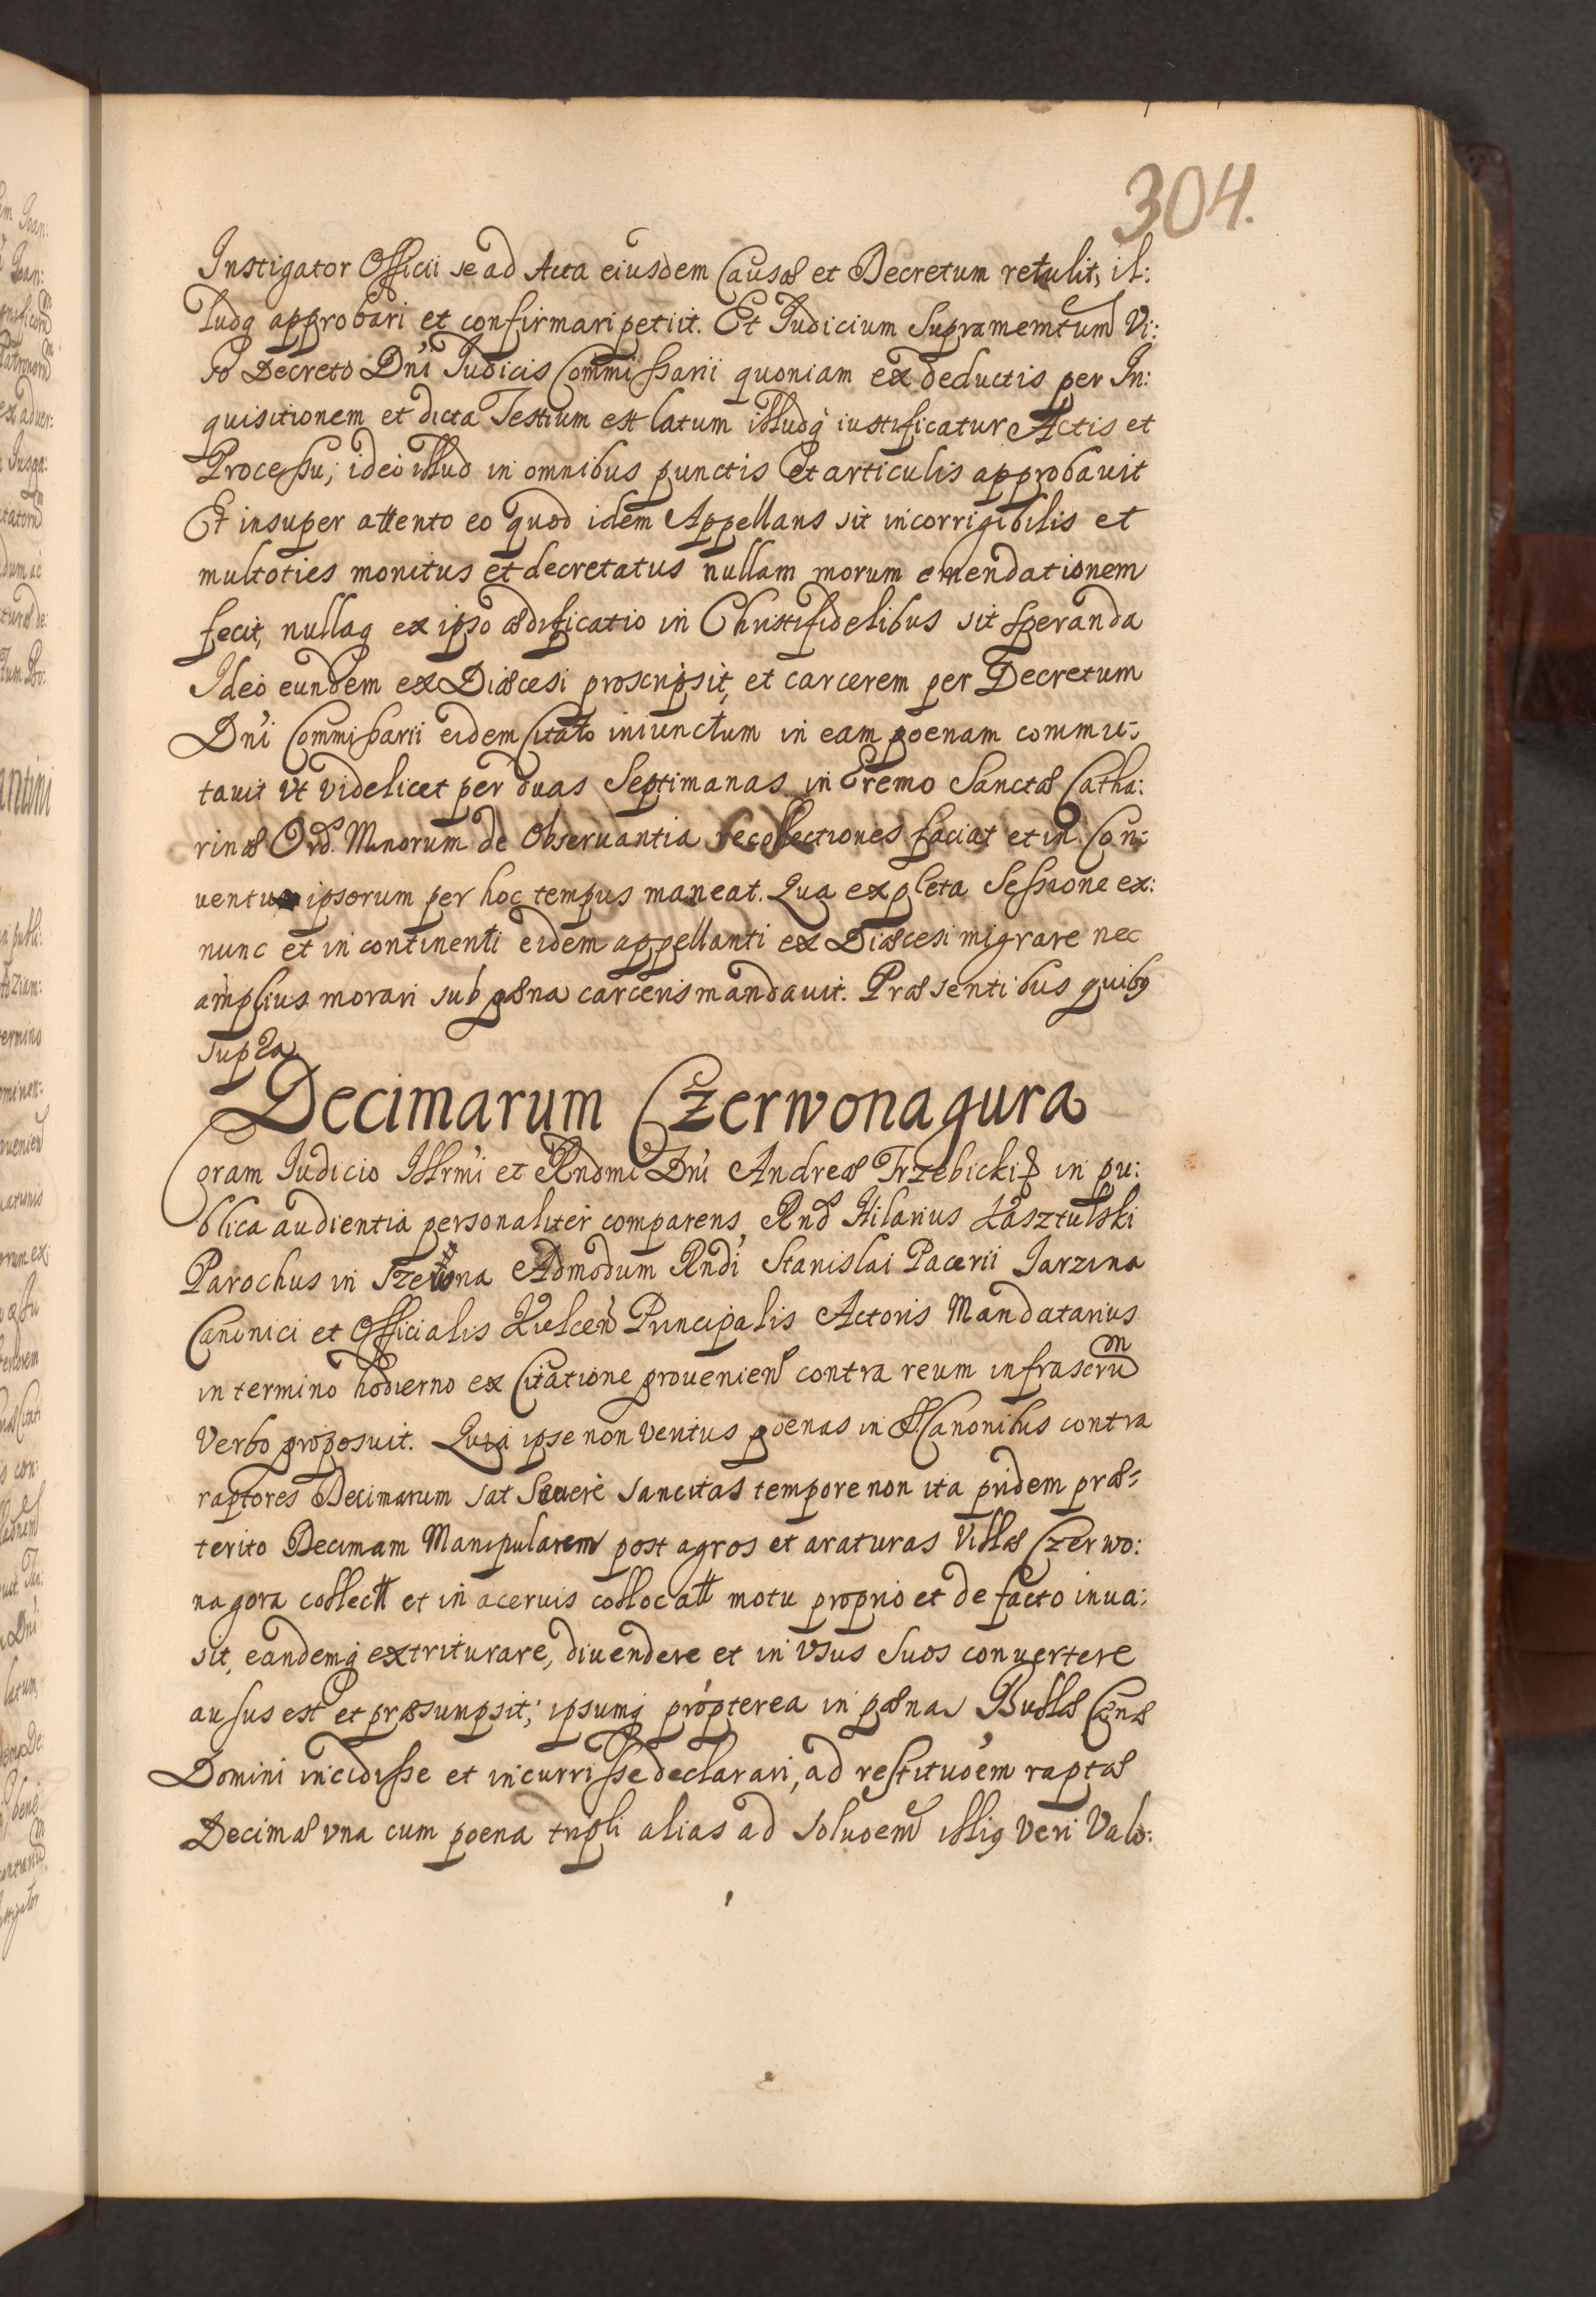 304.
Instigator Officii se ad Acta eiusdem Causæ et Decretum retulit, il:
ludq approbari et confirmari petiit. Et Judicium Supramemtum Vi:
so Decreto Dni Judicis Commissarii quoniam ex deductis per In:
quisitionem et dicta Testium est latum illudq iustificatur Actis et
Processu, ideo illud in omnibus punctis Et articulis approbauit
Et insuper attento eo quod idem Appellans sit incorrigibilis et
multoties monitus et decretatus nullam morum emendationem
fecit, nullaq ex ipso ædificatio in Christifidelibus sit speranda
Ideo eundem ex Diæcesi proscripsit, et carcerem per Decretum
Dni Commissarii eidem Citato iniunctum in eam poenam commu:
tauit Vt videlicet per duas Septimanas in Eremo Sanctæ Catha:
rinæ Ord. Minorum de Obseruantia recollectiones faciat et in Con:
uentu ipsorum per hoc tempus maneat. Qua expleta Sessione ex:
nunc et in continenti eidem appellanti ex Diæcesi migrare nec
amplius morari sub pæna carceris mandauit. Præsentibus quibq
supra
Decimarum Czerwonagura
Coram Judicio Illrmi et Rndmi Dni Andreæ Trzebicki in pu:
blica audientia personaliter comparens Rnd Hilarius Łasztulski
Parochus in Admodum Rndi Stanislai Pacerii Jarzina
Canonici et Officialis Kielcen Principalis Actoris Mandatarius
in termino hodierno ex Citatione prouenien contra reum infrascrum
Verbo proposuit. Quia ipse non veritus poenas in SS Canonibus contra
raptores Decimarum sat Seuerè sancitas tempore non ita pridem præ:
terito Decimam Manipularem post agros et araturas Villæ Czerwo:
na gora collectt et in aceruis collocatt motu proprio et de facto inua:
sit, eandemq extriturare, diuendere et in vsus Suos conuertere
ausus est et præsumpsit; ipsumq propterea in pænas Bullæ Cænæ
Domini incidisse et incurrisse declarari, ad restituoem raptæ
Decimæ vna cum poena tripli alias ad soluoem illiq veri Valo: